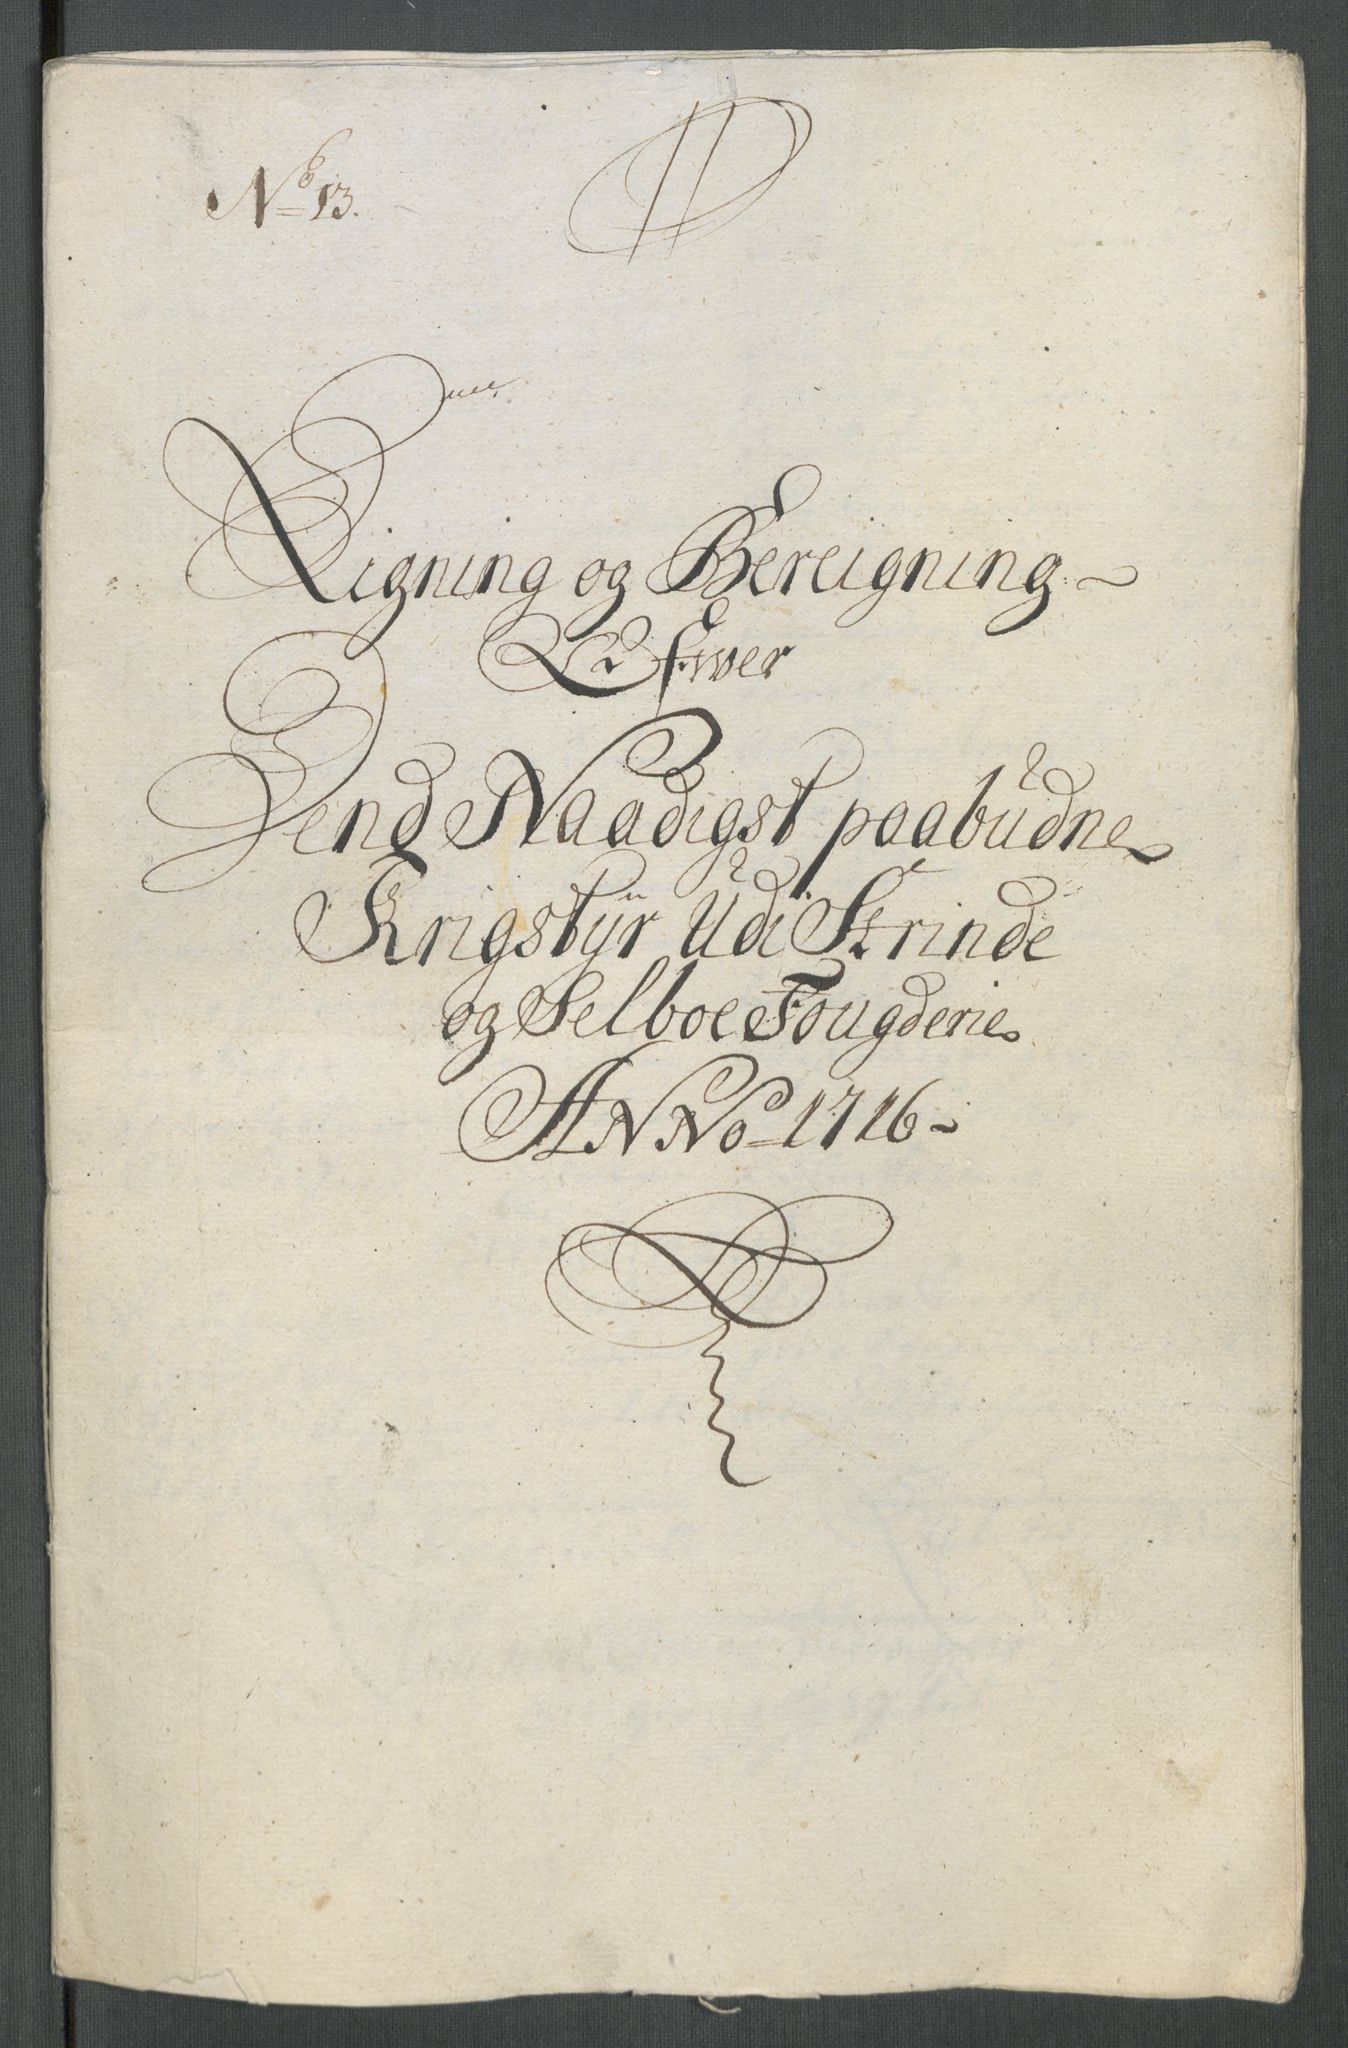 No 13.
Ligning og Bereigning
Efwer
Dend Naadigst paabudne
Krigstÿr Udi Strinde
og Selboe Fougderie
ANNo 1716